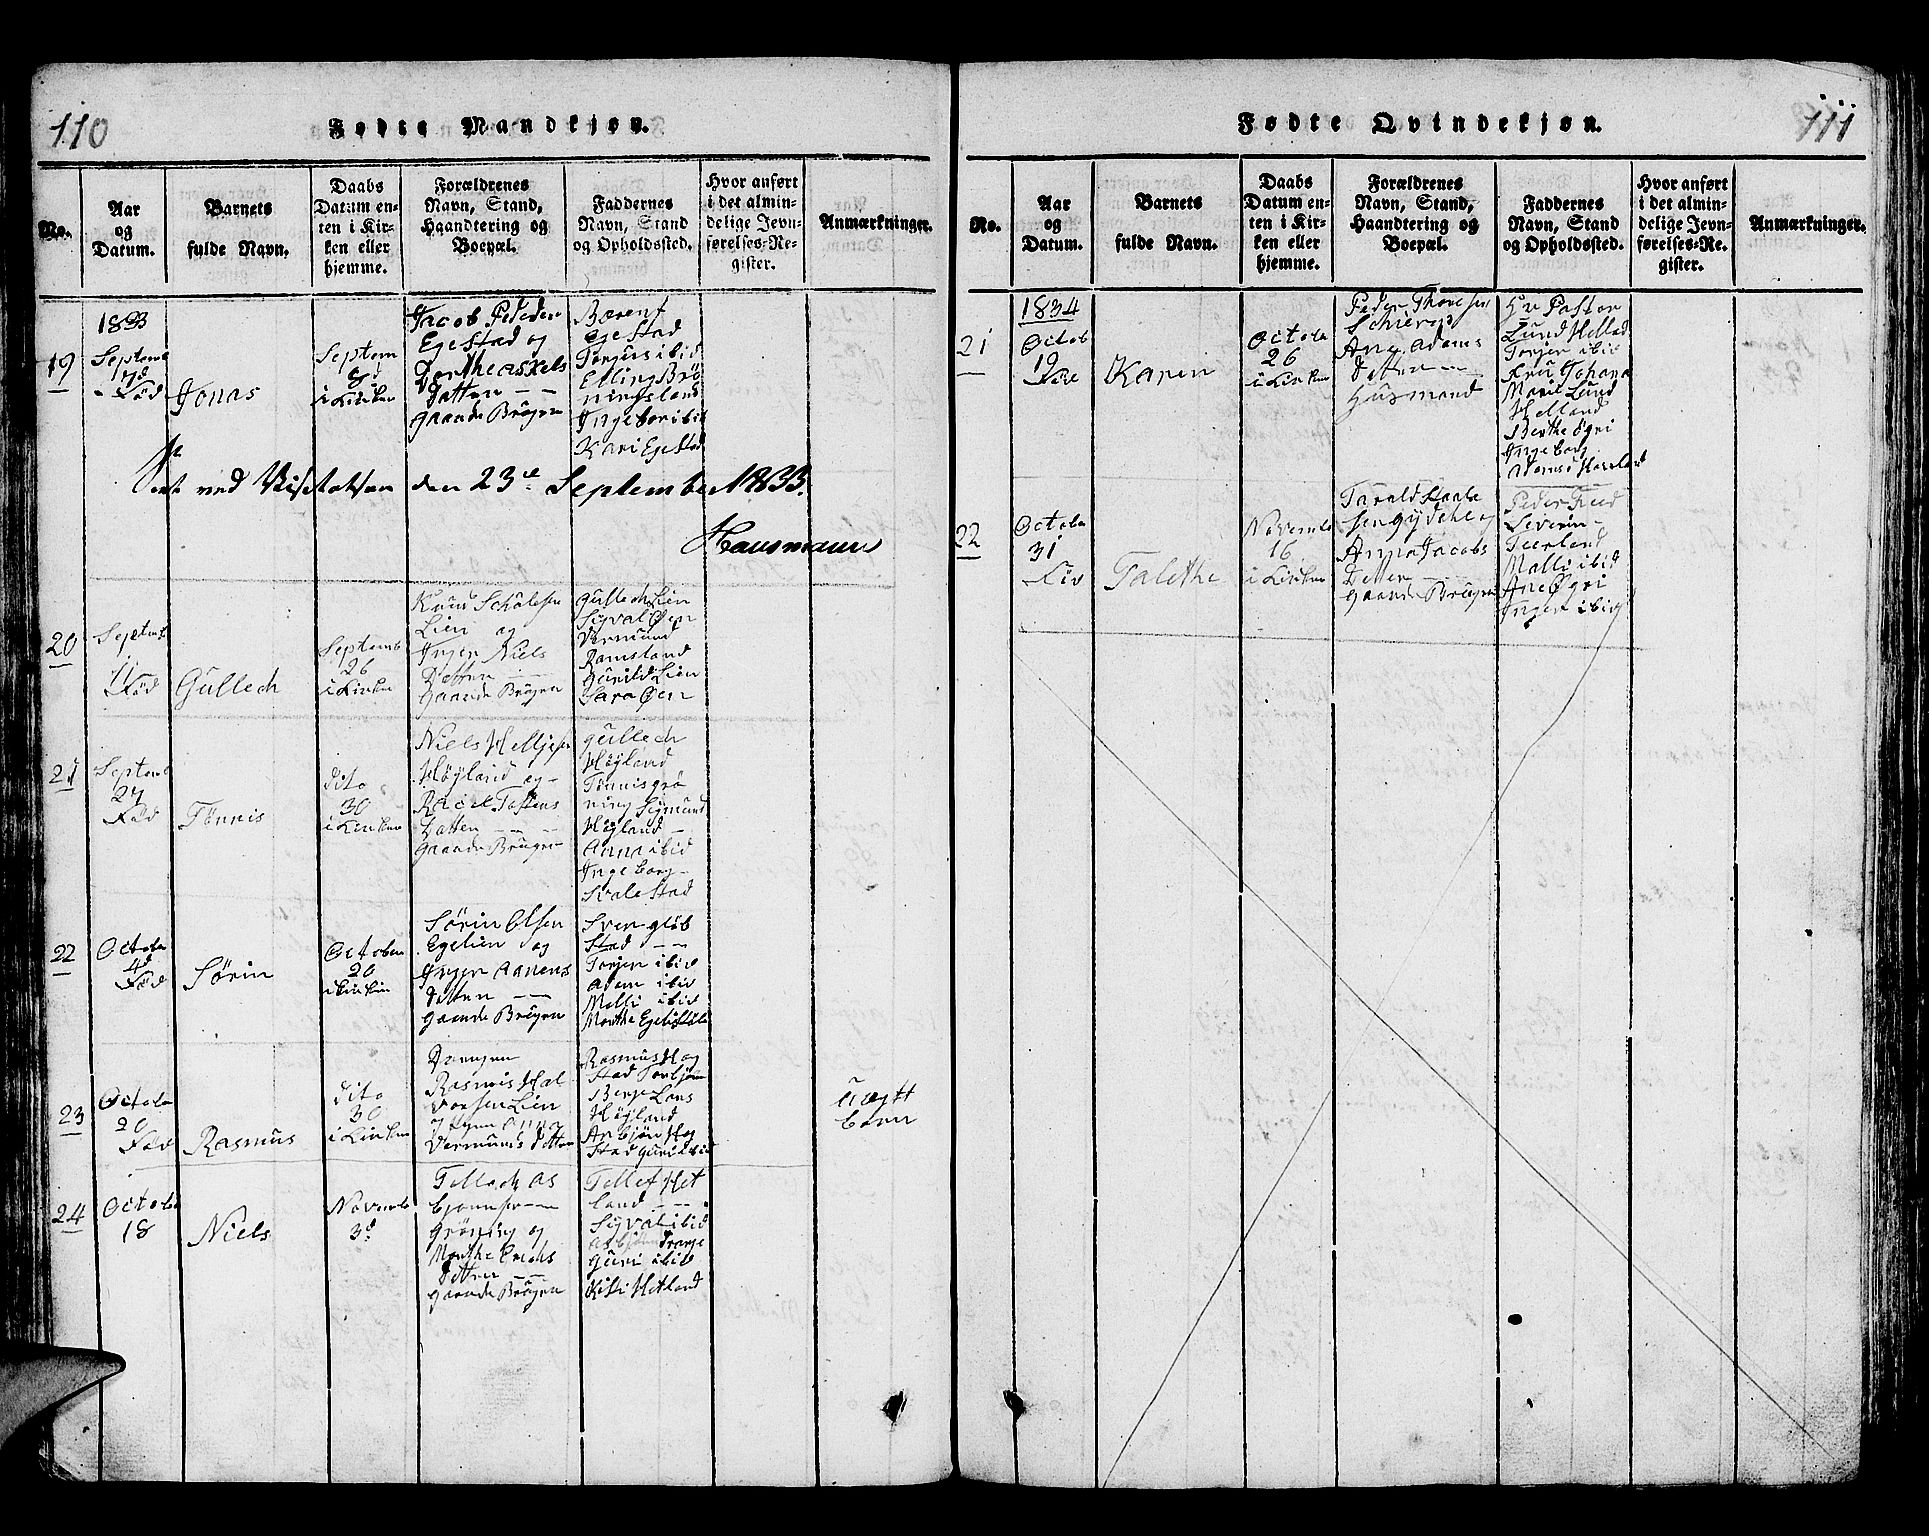 110
Fødte Mandkjøn.
No.
Aar
og
Datum.
Barnets
fulde Navn.
Daabs
Datum en-
ten i Kir-
ken eller
hjemme.
Forældrenes
Navn, Stand,
Haandtering og
Boepæl.
Faddernes
Navn, Stand
og Opholdssted.
Hvor anført
i det almin-
delige Jevn-
førelses-Re-
gister.
Anmærkninger.
19
1833
Septemb
7d
Fød
Jonas
Septem
8d
i Kirken
Jacob Peder
Egestad og
Dorthe Askels
Datter
Gaarde Brugen
Egestad
Torjus ibid
Elling Brö
ningsland
Ingebor ibid
Kari Egestad
ved Visitatsen den 23de September 1833.
Hausmann
20
Septemb
11
Fød
Gullech
Septemb
26
i Kirken
Knud
Lien og
Inger Niels
Datter
Gaarde Brugen
Gullech Lien
Sigval Øen
Vermund
Ramsland
Guruld Lien
Sara Øen
21
Septemb
27
Fød
Tønnis
dito
30
i Kirken
Niels
Høyland og
Rachel
Datter
Gaarde Bruger
Gullech
Høyland
Tønnis Grö
ning Sigmund
Høyland
Anna ibid
Ingeborg
Svalestad
22
Octobr
4d
Fød
Sörin
October
20
i Kirken
Sörin Olsen
Egelien og
Inger Aanens
Datter
Gaarde Brugen
Sven Gløb
Stad
Torjer ibid
Adam ibid
Malli ibid
Marthe
23
Octobr
20
Fød
Rasmus
dito
30
i Kirken
Drengen
Rasmus Hal
vorsen Lien
Vermunds Datter
Rasmus Hog
Stad Torbjørn
Berge Lars
Høyland
Anbjør Hog
Stad Guri ibid
uægte
barn
24
Octobr
18
Niels
Novemb
3d
Tellach As
bjørnsen
Gröning og
Marthe
Datter
Gaarde Brugen
Tellef Het
land
Sigval ibid
Asbjørn Drange
Guri ibid
Hetland
111
Fødte Qvindekjøn.
No.
Aar
og
Datum.
Barnets
fulde Navn.
Daabs
Datum en-
ten i Kir-
ken eller
hjemme.
Forældrenes
Navn, Stand,
Haandtering og
Boepæl.
Faddernes
Navn, Stand
og Opholdssted.
Hvor anført
i det almin-
delige Jevn-
førelses-Re-
gister.
Anmærkninger.
21
1834
Octob
19
Karen
Octobr
26
i Kirken
Peder Thorsen
Ane Adams
Datter
Husmand
Hr Pastor
Lund Helland
Torjer ibid
Fru Johana
Marie Lund
Helland
Berthe Øgri
Ingeborg
22
Octobr
31
Talethe
Novemb
16
i Kirken
Tarald
sen Gydahl og
Anna Jacobs
Datter
Gaarde Brugen
Peder
Severin
Malli ibid
Ane Øgri
Inger ibid